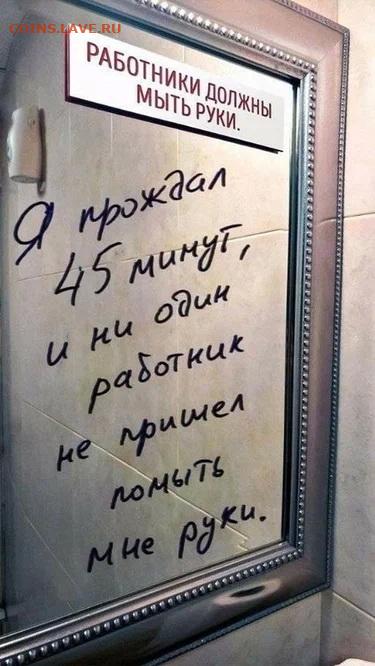 COINS.LAVE.RU
РАБОТНИКИ ДОЛЖНЫ
МЫТЬ РУКИ.
Я прождал
45 минут,
и ни один
работник
не пришел
помыть
мне руки.